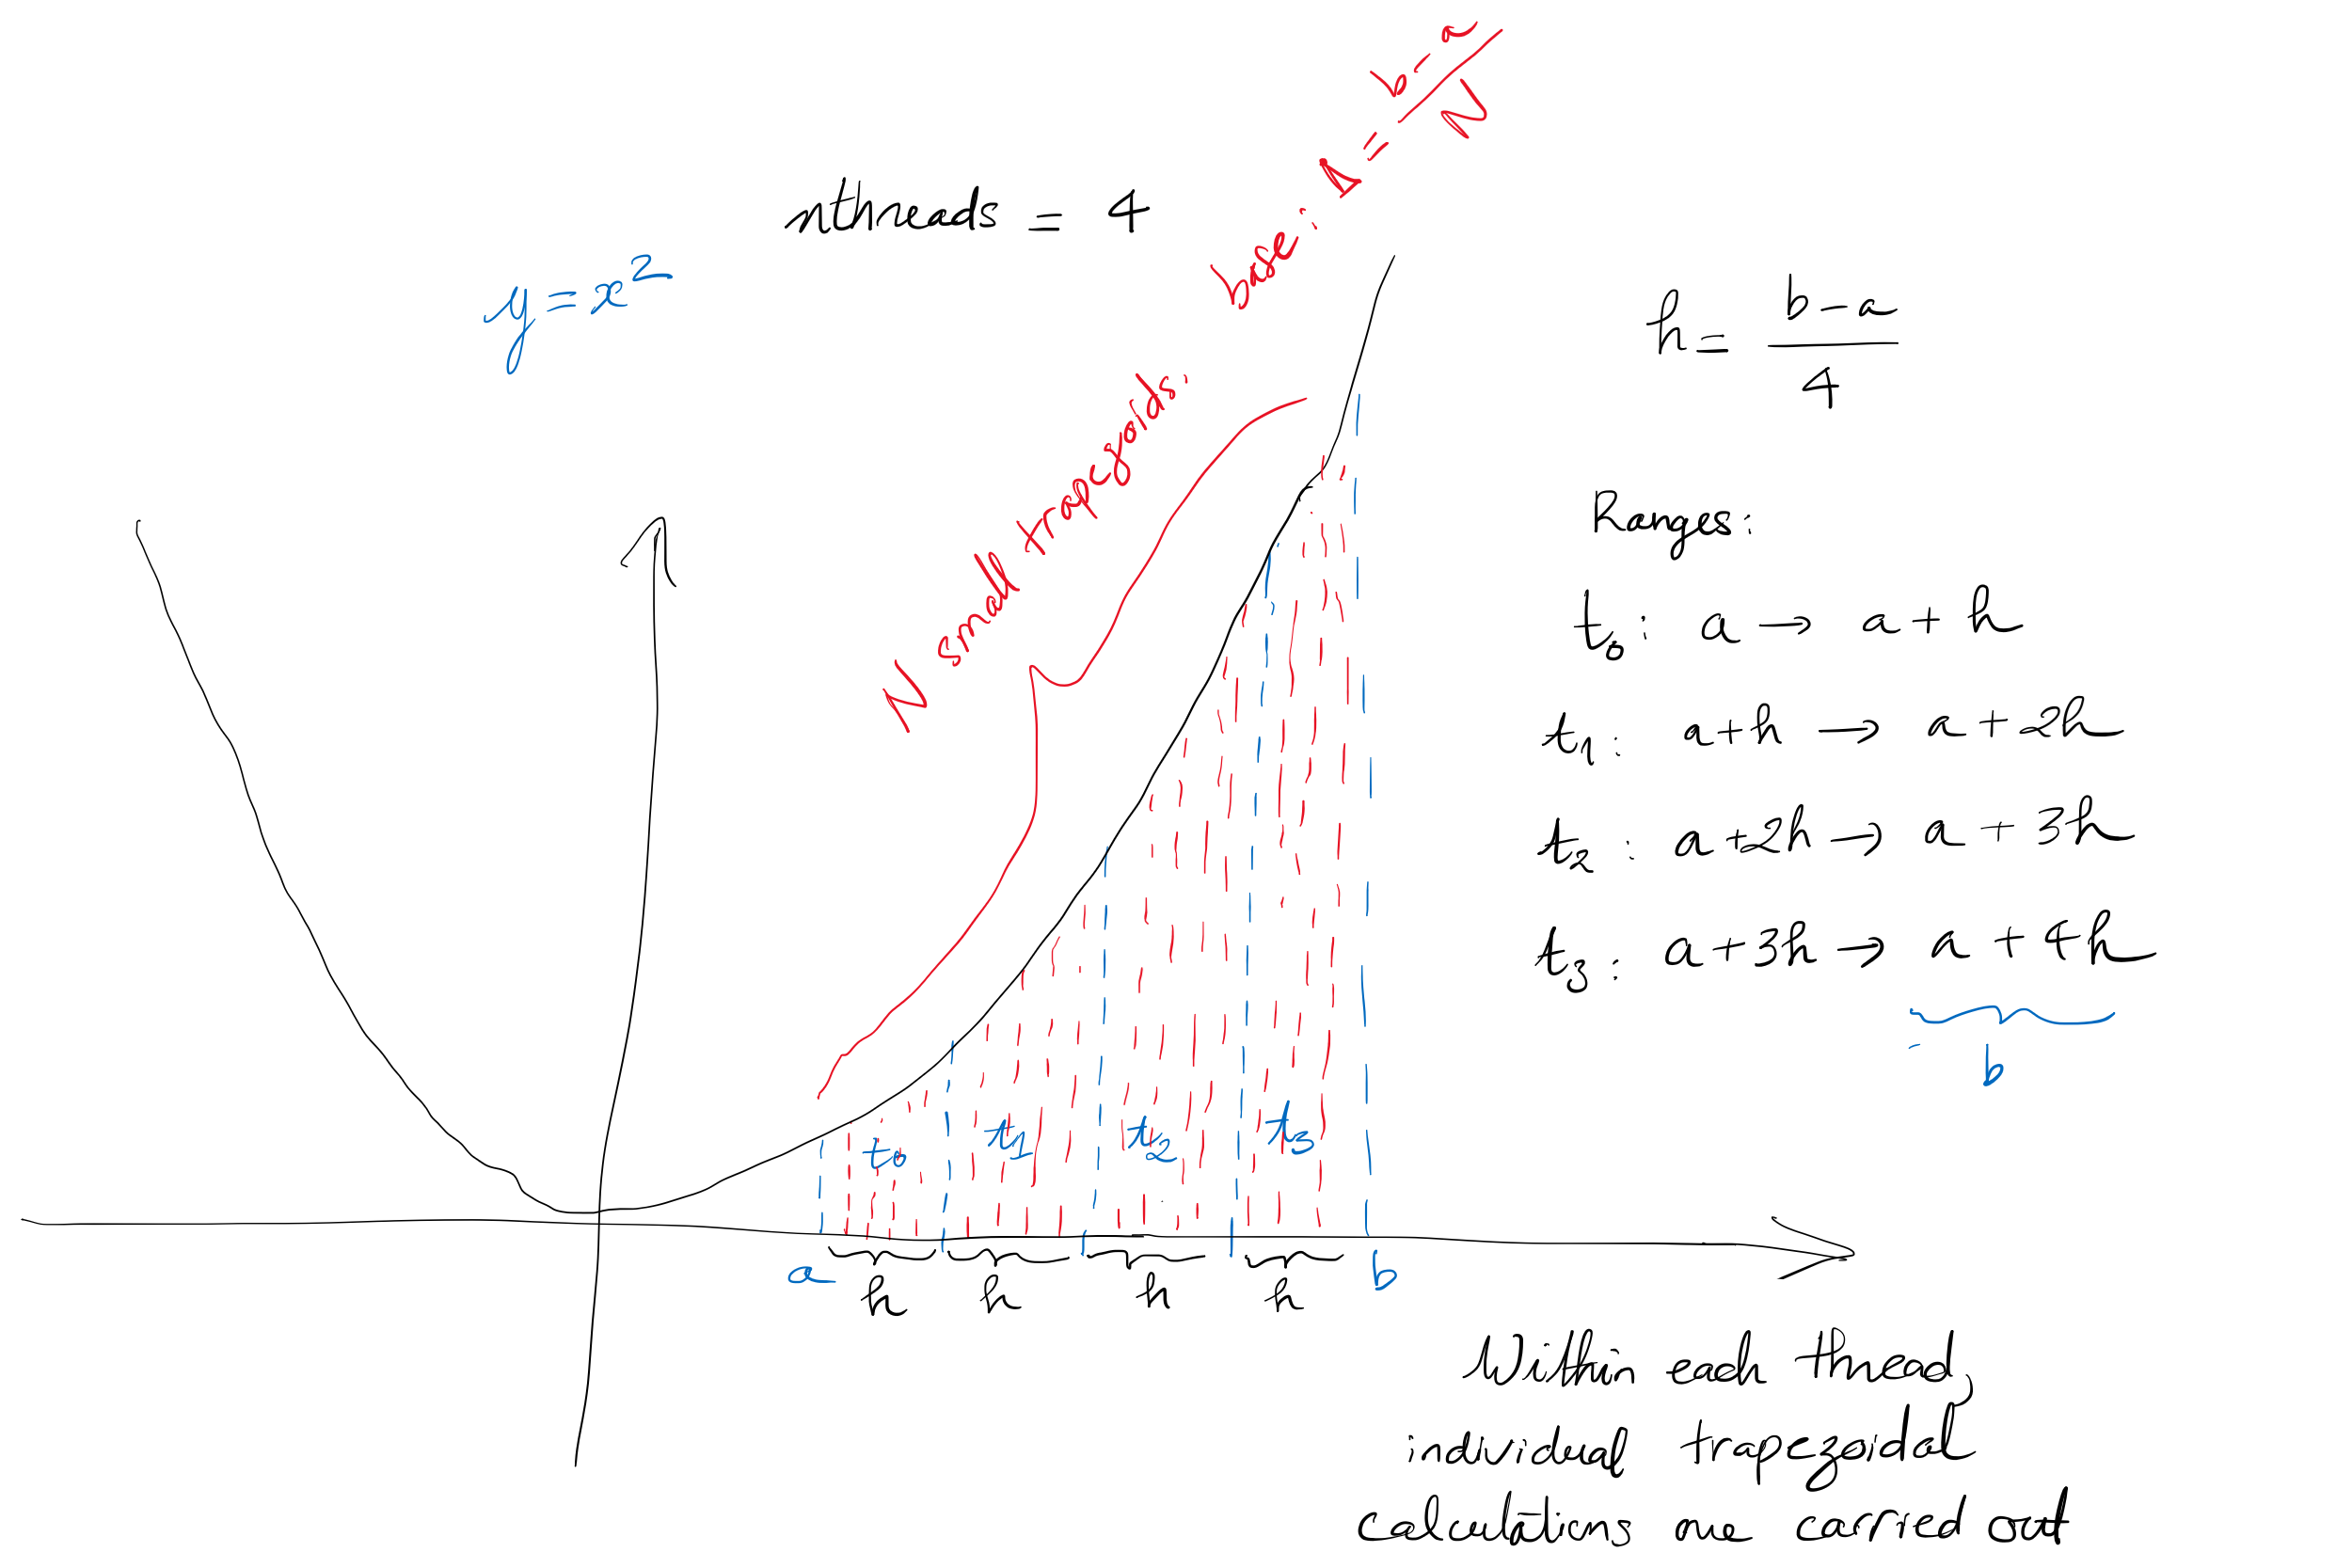 nthreads = 4
y = x²
N small trapezoids:
base: Δ = (b - a)/N
h = (b - a)/4
Ranges:
t₀: a → a + h
t₁: a+h → a+2h
t₂: a+2h → a + 3h
t₃: a+3h → a + 4h
b
t₀ t₁ t₂ t₃
a b
h h h h
Within each thread,
individual trapezoidal
calculations are carried out